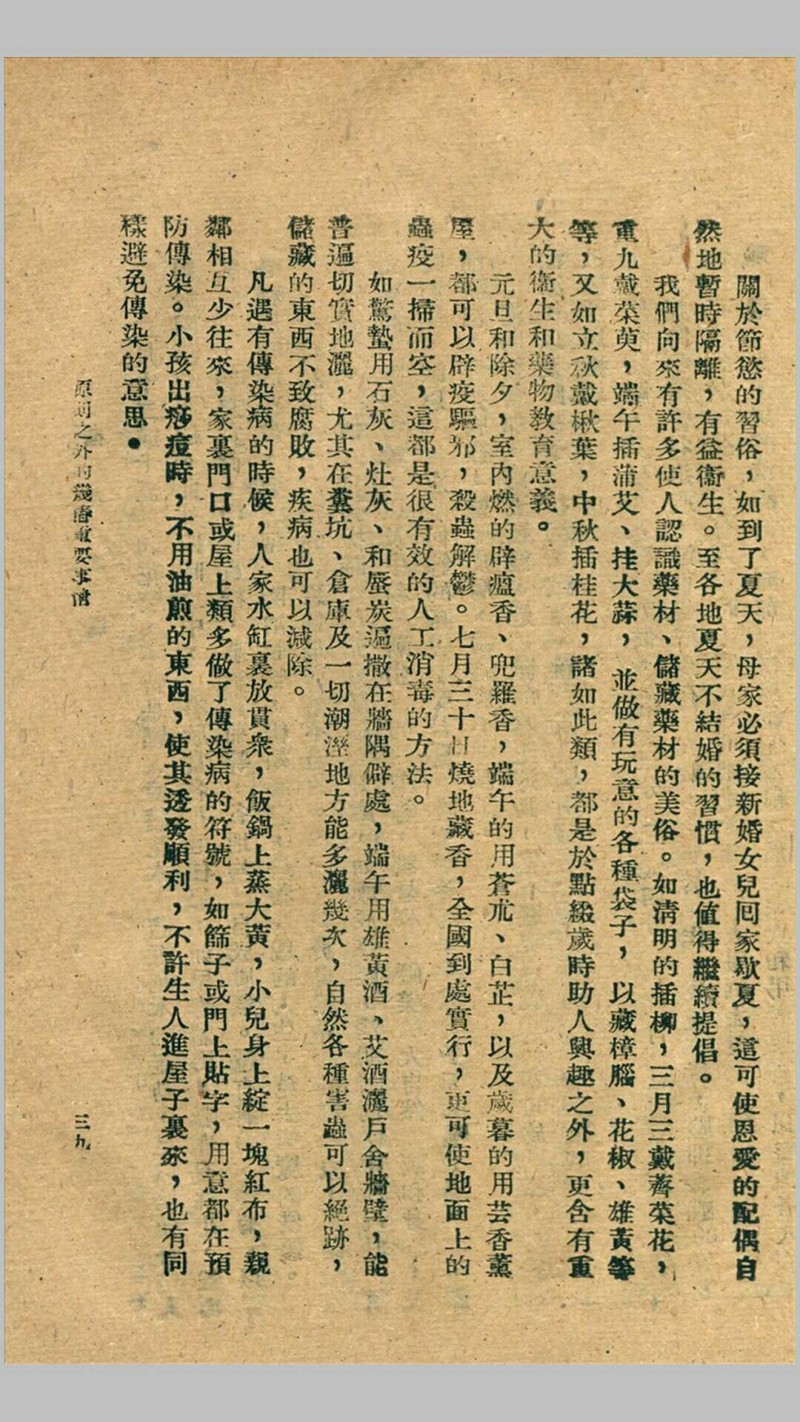 關於節慾的習俗，如到了夏天，母家必須接新婚女兒回家歇夏，這可使恩愛的配偶自
然地暫時隔離，有益衞生。至各地夏天不結婚的習慣，也值得繼續提倡。
我們向來有許多使人認識藥材、儲藏藥材的美俗。如清明的插柳，三月三戴薺菜花，
重九戴茱萸，端午插蒲艾、挂大蒜，並做有玩意的各種袋子，以藏樟腦、花椒、雄黃等
等，又如立秋戴楸葉，中秋插桂花，諸如此類，都是於點綴歲時助人興趣之外，更含有重
大的衞生和藥物教育意義。
元旦和除夕，室內燃的辟瘟香、兜羅香，端午的用蒼朮、白芷，以及歲暮的用芸香薰
屋，都可以辟疫驅邪，殺蟲解鬱。七月三十日燒地藏香，全國到處實行，更可使地面上的
蟲疫一掃而空，這都是很有效的人工消毒的方法。
如驚蟄用石灰、灶灰、和蜃炭遍撒在牆隅僻處，端午用雄黃酒、艾酒灑戶舍牆壁，能
普遍切實地灑，尤其在糞坑、倉庫及一切潮溼地方能多灑幾次，自然各種害蟲可以絕跡，
儲藏的東西不致腐敗，疾病也可以減除。
凡遇有傳染病的時候，人家水缸裏放貫衆，飯鍋上蒸大黃，小兒身上綻一塊紅布，親
鄰相互少往來，家裏門口或屋上類多做了傳染病的符號，如篩子或門上貼字，用意都在預
防傳染。小孩出痧痘時，不用油煎的東西，使其透發順利，不許生人進屋子裏來，也有同
樣避免傳染的意思。
原則之外的幾樁重要事情
三九